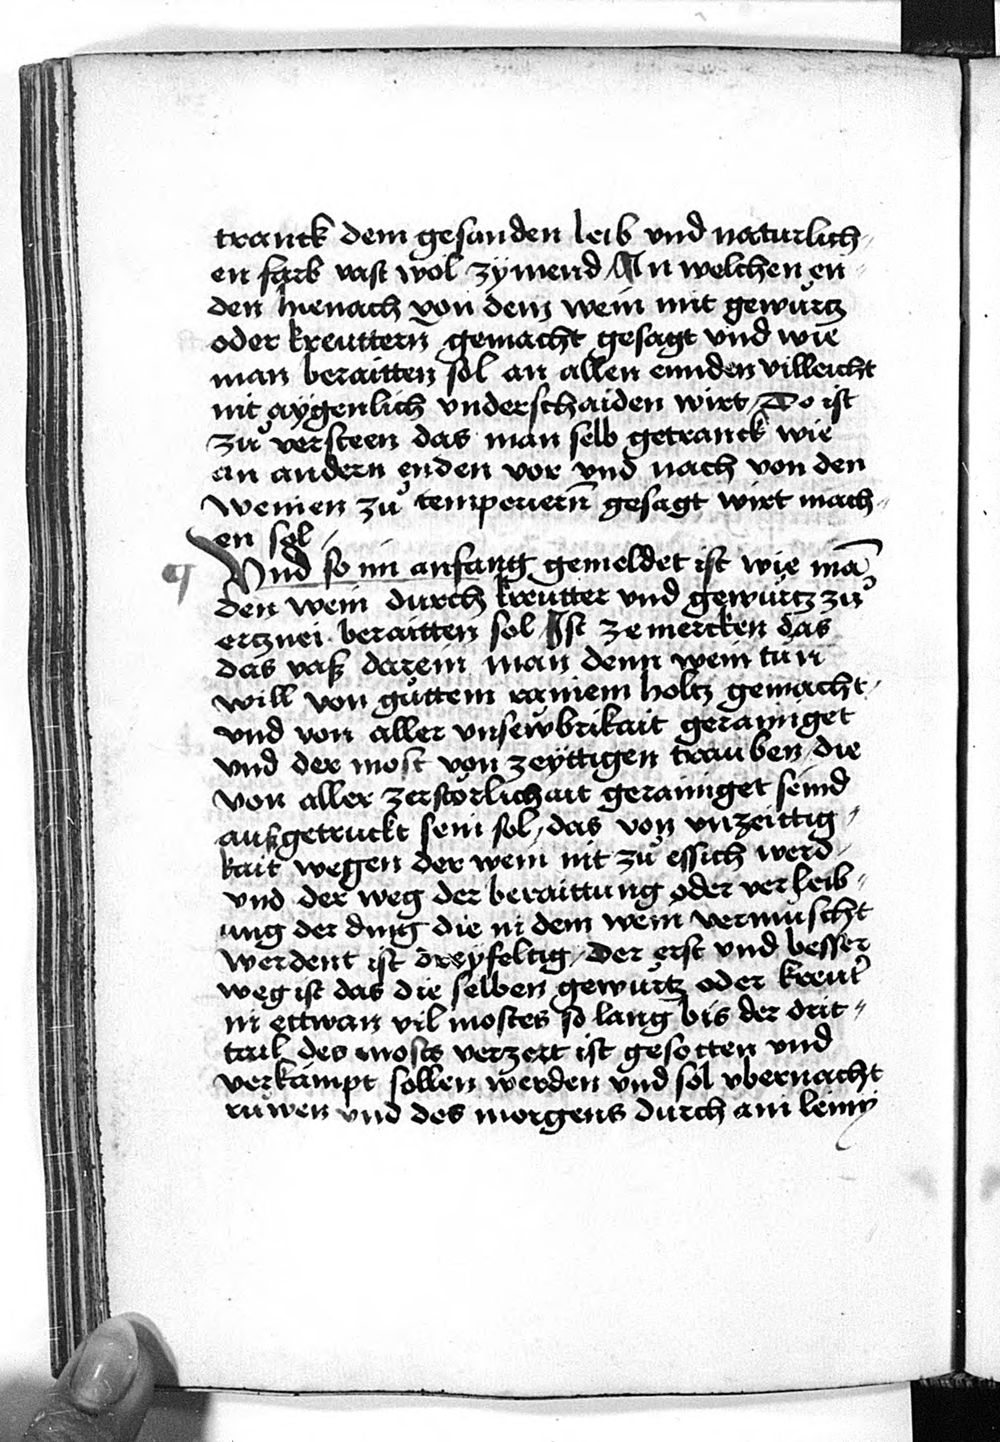 tranck dem gesunden leib vnd naturlich„
en farb vast wol zymend In welchen en„
den hienach von dem wein mit gewürtz
oder kreuttern gemacht gesagt vnd wie
man beraitten sol an allen ennden villeicht
nit aÿgenlich vnderschaiden wirt / Do ist
zuͦ versteen das man selb getranck wie
an andern enden vor vnd nach von den
weinen zuͦ temperiern̄ gesagt wirt mach„
en sol /
Vnd so im anfang gemeldet ist wie mā
den wein durch kreutter vnd gewürtz zuͦ
ertznei beraitten sol Ist ze mercken das
das vaß darein man denn wein tun
will von guͦttem rainem holtz gemacht /
vnd von aller vnsewbrikait gerainiget
vnd der most von zeÿttigen trauben / die
von aller zerstörlichait gerainiget seind
außgetruckt sein sol / das von vnzeittig„
kait wegen der wein nit zuͦ essich werd /
vnd der weg der beraittung oder verleib„
ung der ding die in dem wein vermuscht
werdent ist dreÿfeltig / Der erst vnd besser
weg ist das die selben gewürtz oder kreut̾
in ettwan vil mostes so lang bis der drit„
tail des mosts verzert ist gesotten vnd
verkampt sollen werden vnd sol vbernacht
ruͦwen vnd des morgens durch ain leiny